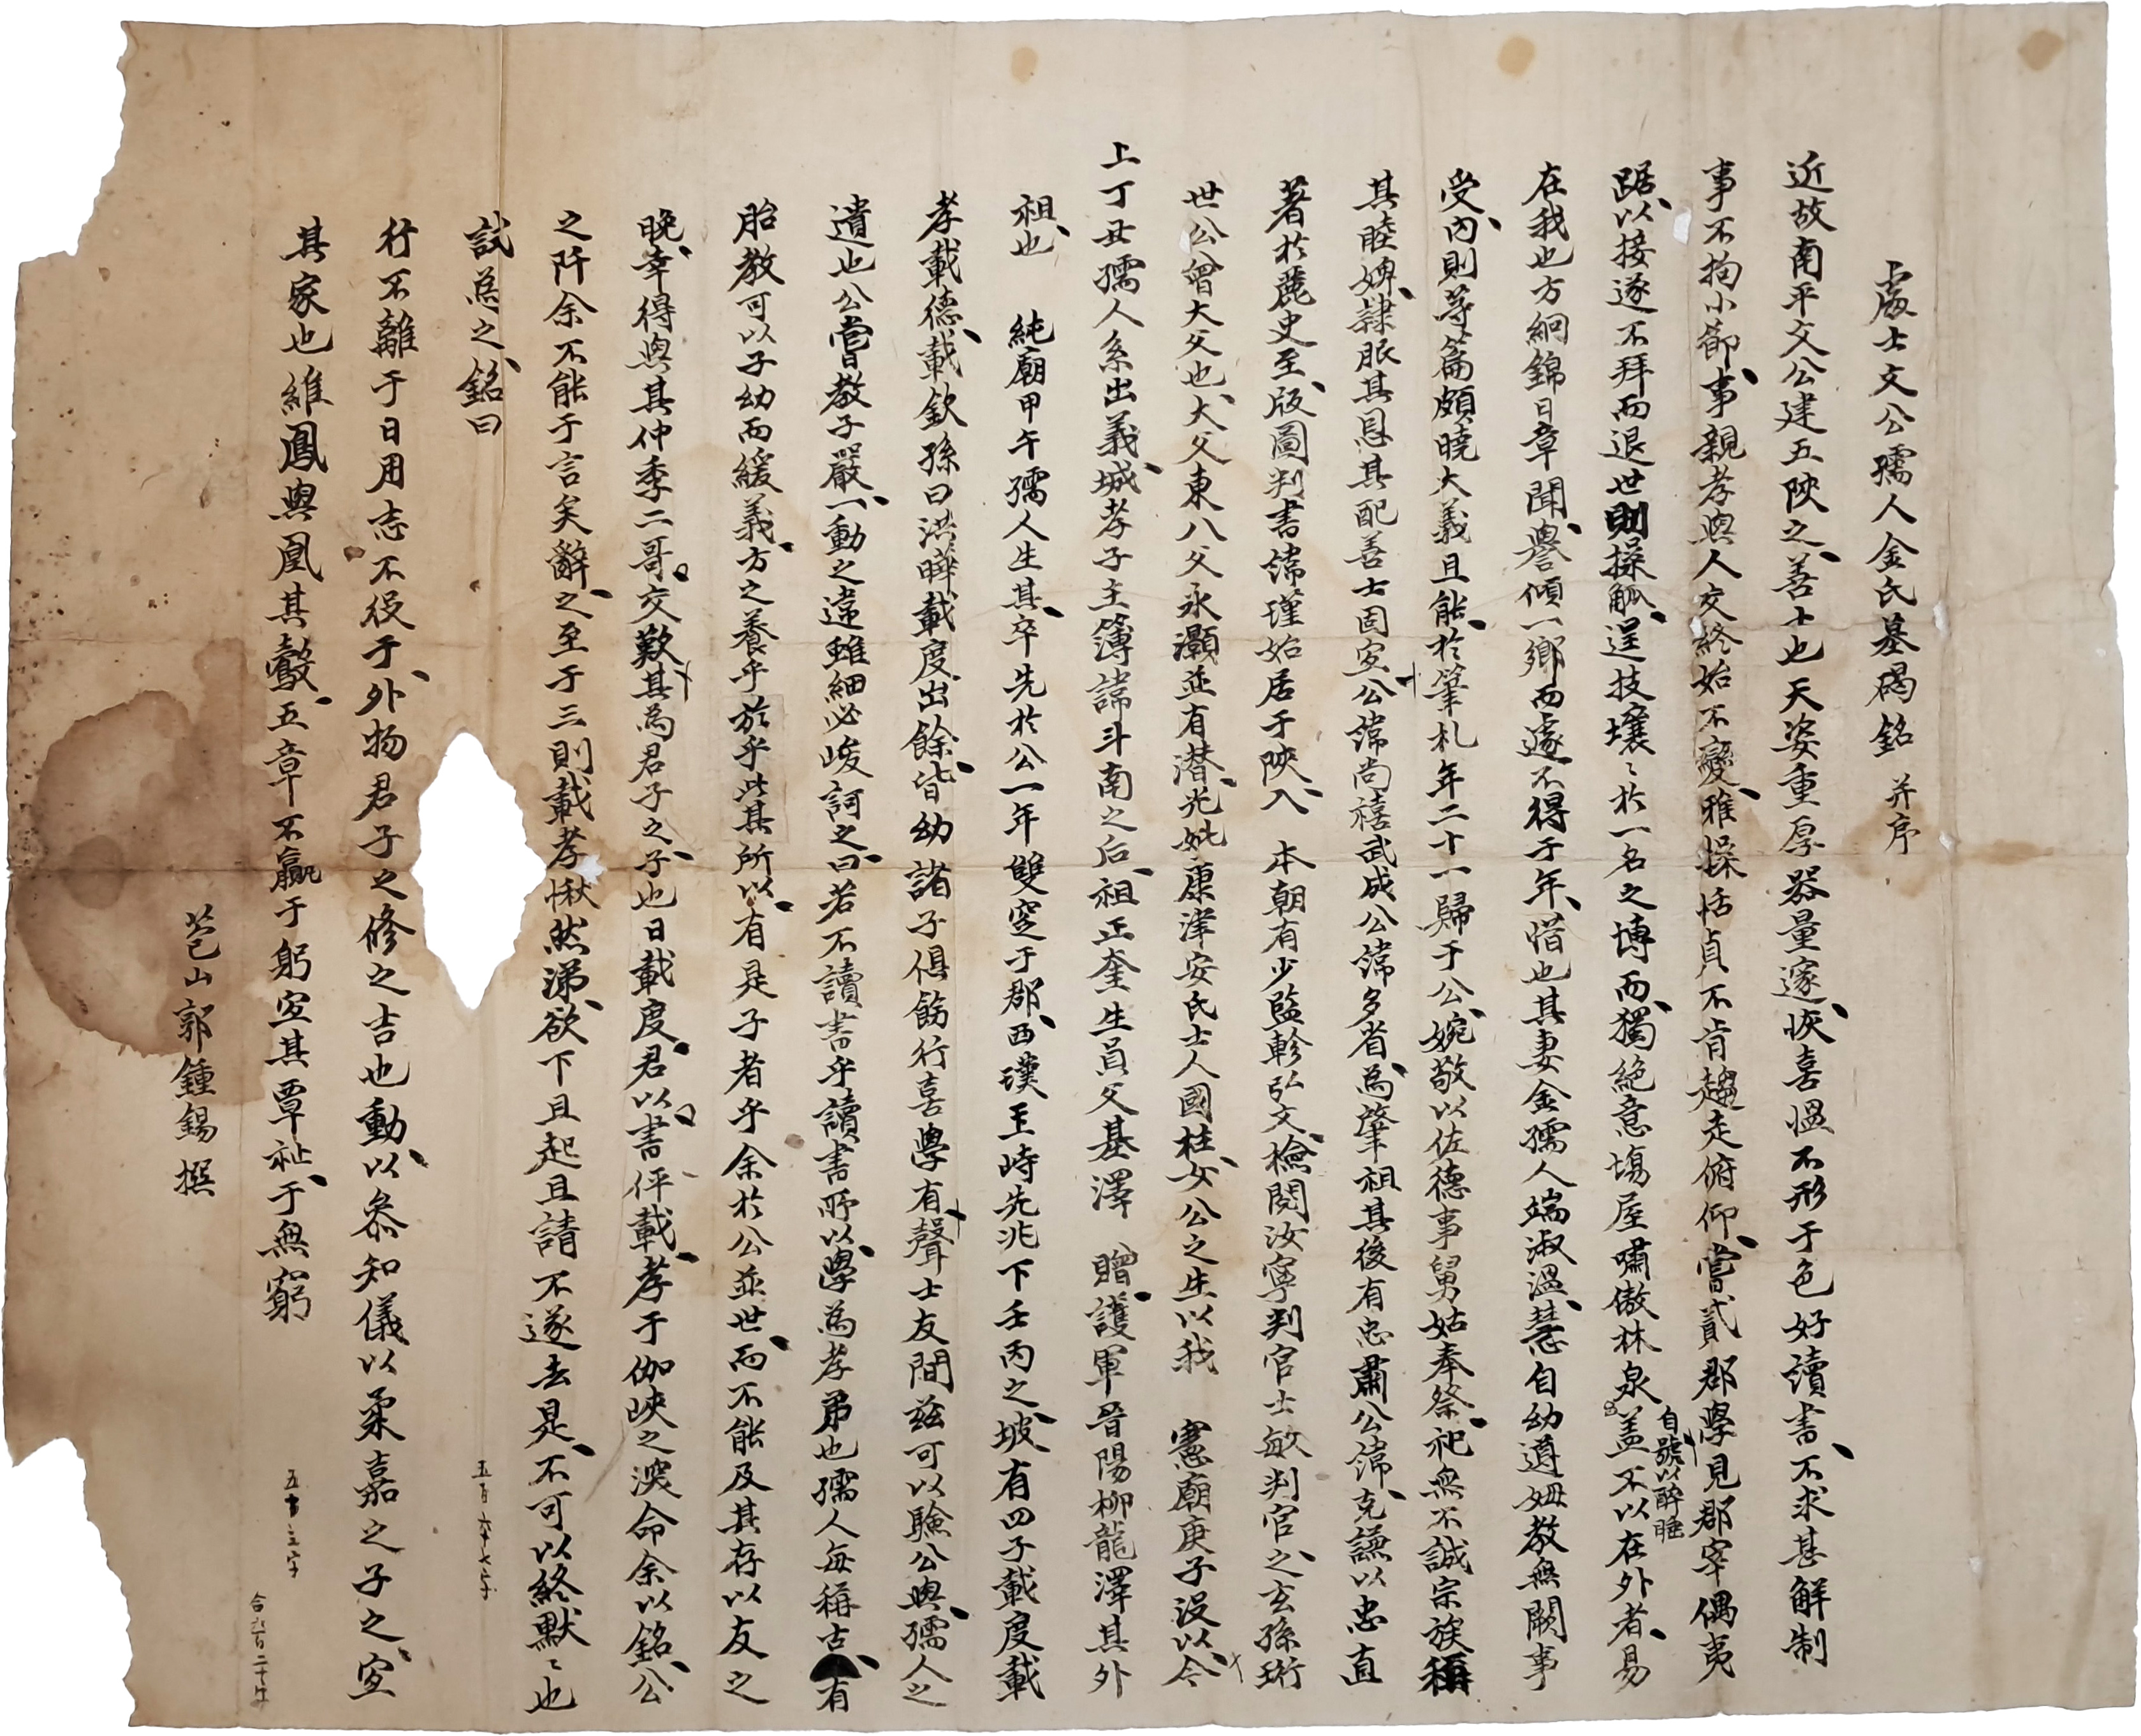 處士文公孺人金氏墓碣銘 并序
近故南平文公建五陜之善士也天姿重厚器量邃恢喜慍不形于色好讀書不求甚解制
事不拘小節事親孝與人交終始不變雅操恬貞不肯趨走俯仰嘗貳郡學見郡宰偶夷
踞以接遂不拜而退世則操觚逞技壤〻於一名之博而獨絶意塲屋嘯傲林泉盖不以在外者易
自號以醉睡
在我也方絅錦日章聞譽傾一鄉而遽不得于年惜也其妻金孺人端淑溫慧自幼遵姆教無闕事
受內則等篇頗曉大義且能於筆札年二十一歸于公婉敬以佐德事舅姑奉祭祀無不誠宗族稱
其睦婢隷服其恩其配善士固宜公諱尚禧武成公諱多省爲肇祖其後有忠肅公諱克謙以忠直
著於麗史至版圖判書諱瑾始居于陜入 本朝有少監軫弘文檢閱汝寧判官士敏判官之玄孫珩
世公曾大父也大父東八父永灝並有潛光妣康津安氏士人國柱女公之生以我 憲廟庚子沒以今
上丁丑孺人系出義城孝子主簿諱斗南之后祖正奎生員父基澤 贈護軍晉陽柳龍澤其外
祖也 純廟甲午孺人生其卒先於公一年雙窆于郡西璞王時先兆下壬丙之坡有四子載度載
孝載德載欽孫曰洪曄載度出餘皆幼諸子俱飭行喜學有聲士友間玆可以驗公與孺人之
遺也公嘗教子嚴一動之違雖細必峻訶之曰若不讀書乎讀書所以學爲孝弟也孺人每稱古有
胎教可以子幼而緩義方之養乎於乎此其所以有是子者乎余於公並世而不能及其存以友之
晩幸得與其仲季二哥交歎其爲君子之子也日載度君以書伻載孝于伽峽之濙命余以銘公
之阡余不能于言矣辭之至于三則載孝愀然涕欲下且起且請不遂去是不可以終默〻也
試爲之銘曰
行不離于日用志不役于外物君子之修之吉也動以叅知儀以柔嘉之子之宜
其家也維鳳與凰其鷇五章不贏于躬宜其覃祉于無窮
苞山郭鍾錫撰
五百六十七字
五十三字
合六百二十字